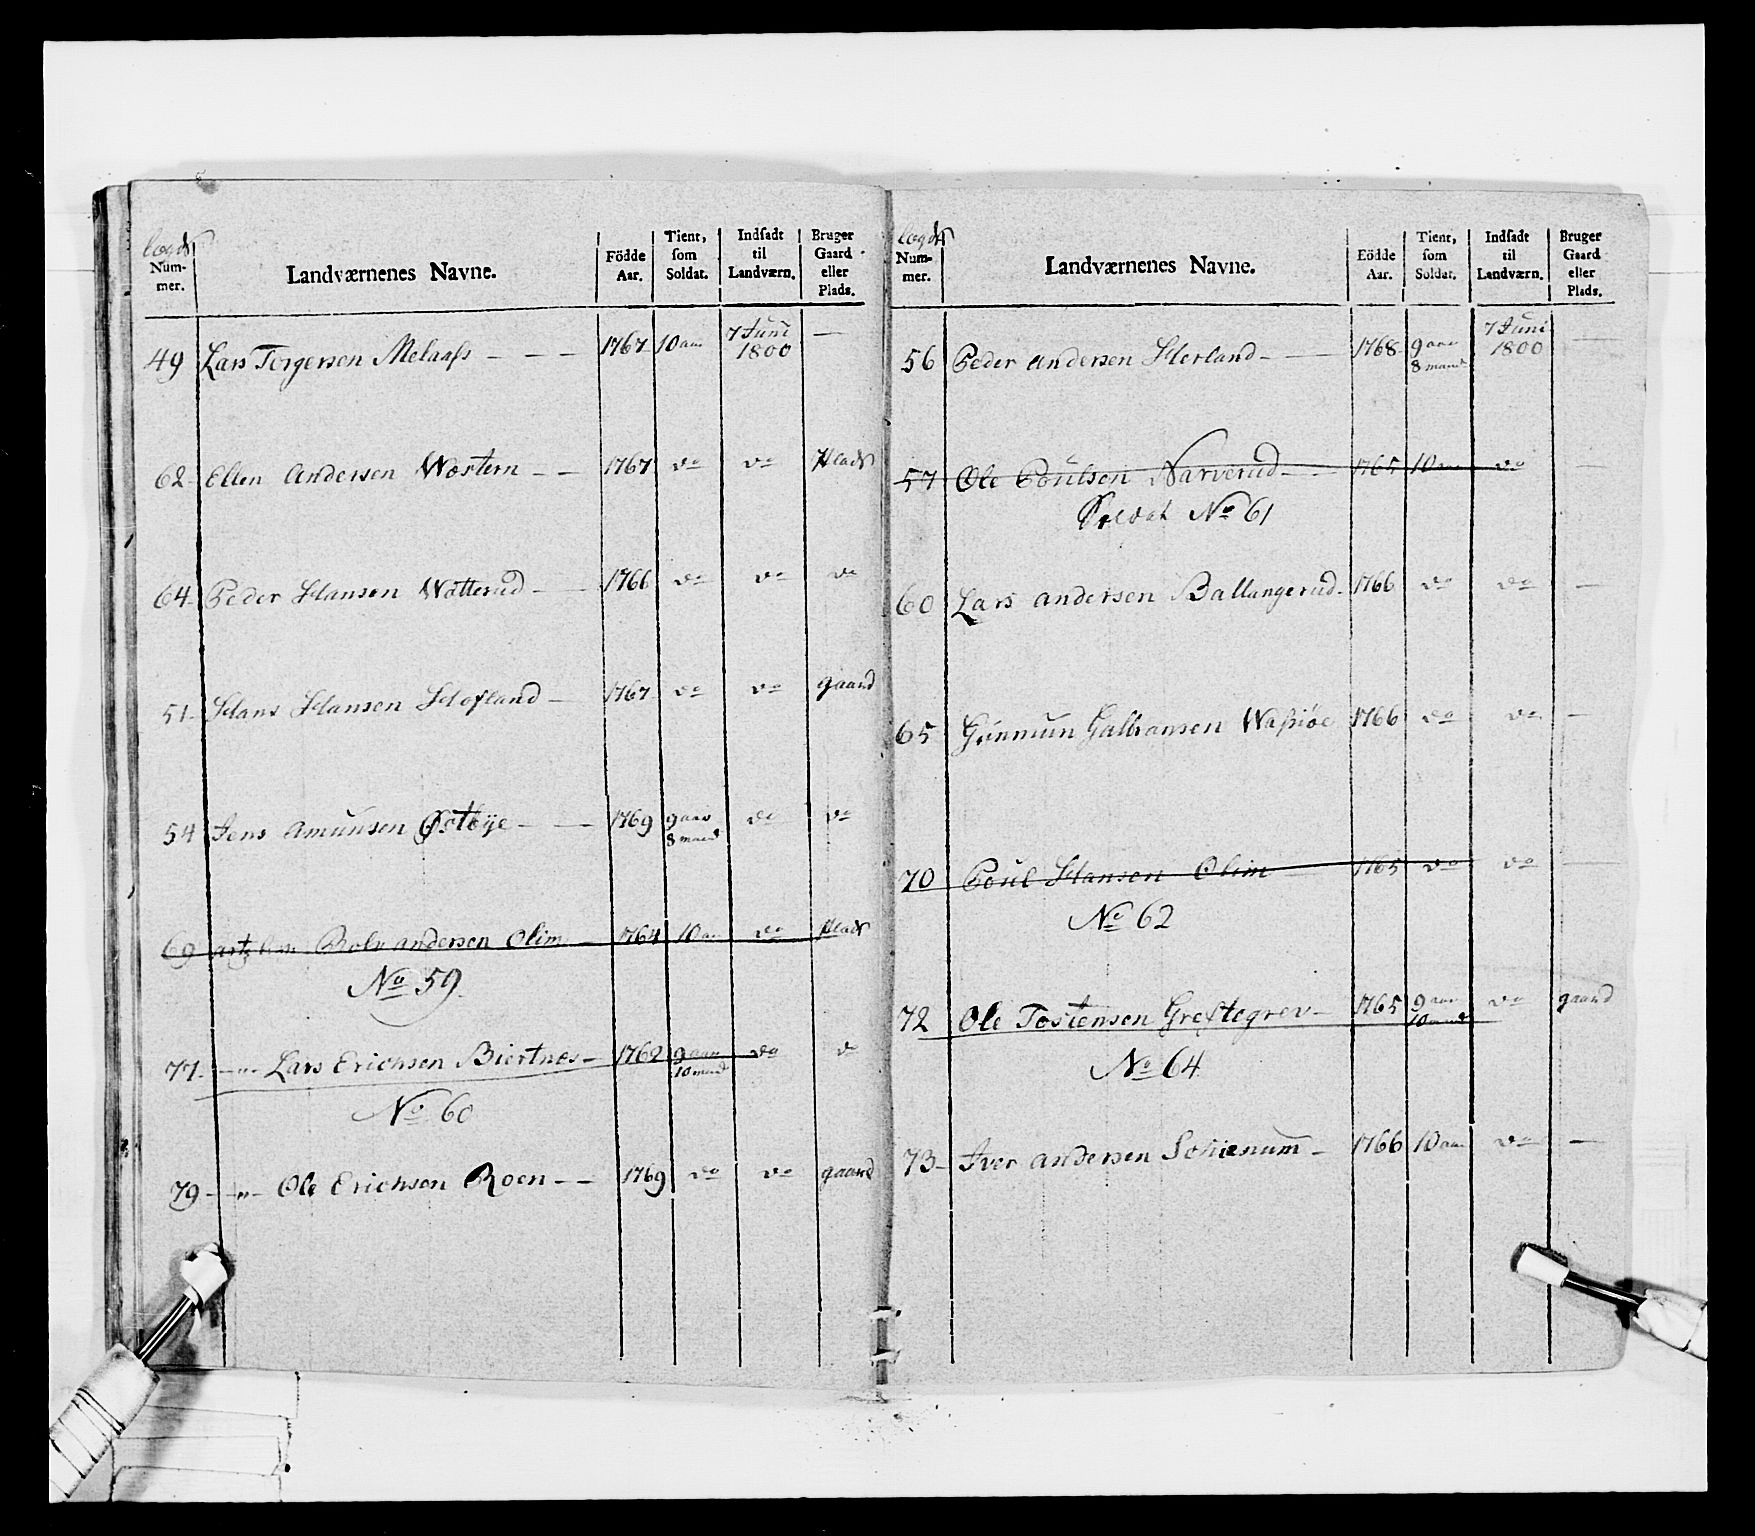 Lægds
Num-
mer.
Landværnenes Navne.
Födde
Aar.
Tient,
som
Soldat.
Indsadt
til
Landværn.
Bruger
Gaard
eller
Plads.
49 Lars Torgersen Melaass - - - 1767 10 aar 7 Juni 1800 —
62 Ellen Andersen Wæstern - - 1767 do do Plads
64 Peder Hansen Watterud - - 1766 do do do
51 Hans Hansen Hofland - 1767 do do gaard
54 Jens Amunsen Østbÿe - - 1769 9 aar 8 maned do do
69 Rolv andersen Olim 1764 10 aar do Plads
No 59
77 - " - Lars Erichsen Biertnæs - 1762 9 aar 10 maned do do
No 60
79 - " - Ole Erichsen Roen - - 1769 do do gaard
Lægds
Num-
mer.
Landværnenes Navne.
Födde
Aar.
Tient,
som
Soldat.
Indsadt
til
Landværn.
Bruger
Gaard
eller
Plads.
56 Peder Andersen Herland - - 1768 9 aar 8 maned 7 Juni 1800 —
57 Ole Poulsen Narverud - - 1765 10 aar do —
Soldat No 61
60 Lars Andersen Ballangerud - 1766 do do —
65 Gunmun Galbransen Wassiøe 1766 do do —
70 Poul Hansen Olim 1765 do do —
No 62
72 Ole Tostensen Greftegrev - 1765 9 aar 10 maned do gaard
No 64
73 - Iver Andersen Schienum - 1766 10 aar do —